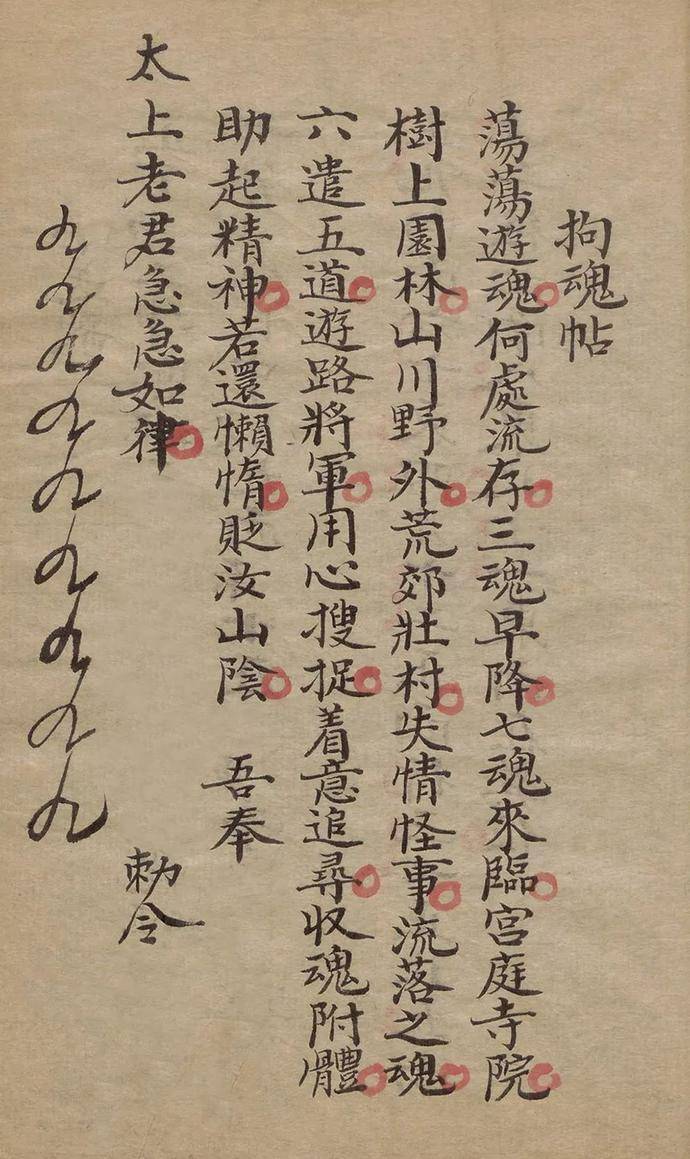 拘魂帖
蕩蕩遊魂何處流存三魂早降七魂來臨宮庭寺院
樹上園林山川野外荒郊壯村失情怪事流落之魂
六遣五道遊路將軍用心搜捉着意追尋収魂附體
助起精神若還懶惰貶汝山陰 吾奉
太上老君急急如律 勅令
九九九九九九九九九